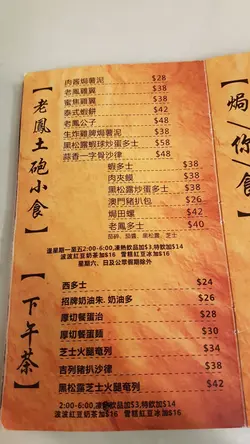 【老鳳土砲小食】
肉醬焗薯泥 $28
老鳳雞翼 $38
蜜焦雞翼 $38
泰式蝦餅 $42
老鳳公子 $48
生炸雞髀焗薯泥 $38
黑松露蝦球炒蛋多士 $58
蒜香一字骨沙律 $48
蝦多士 $38
肉夾饃 $38
黑松露炒蛋多士 $38
澳門豬扒包 $26
焗田螺 $42
老鳳多士 $40
茄碎、甜醬、黑松露、芝士
逢星期一至五2:00-6:00,凍熱飲品加$3,特飲加$14
波波紅豆奶茶加$16 雪糕紅豆冰加$16
星期六、日及公眾假期除外
【下午茶】
西多士 $24
招牌奶油朱.奶油多 $26
厚切餐蛋治 $28
厚切餐蛋麵 $30
芝士火腿奄列 $34
吉列豬扒沙律 $38
黑松露芝士火腿奄列 $42
2:00-6:00,凍熱飲品加$3,特飲加$14
波波紅豆奶茶加$16 雪糕紅豆冰加$16
焗
你
食